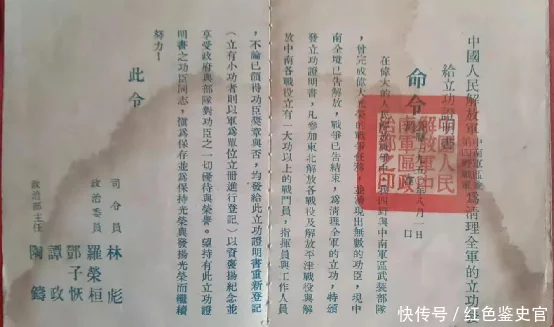 中國人民解放軍中南軍區第四野戰軍爲清理全軍的立功
給立功證明書
命令
八月一日
在偉大的人民解放戰爭中,我四野與中南軍區武裝部隊
,曾完成偉大光榮的戰爭任務,並湧現出無數的功臣,現中
南全境已告解放,戰爭已告結束,爲清理全軍的立功,特頒
發立功證明書,凡參加東北解放各戰役及解放平津戰役與解
放中南各戰役立有一大功以上的戰鬥員,指揮員與工作人員
,不論已領得功臣獎章與否,均發給此立功證明書重新登記
(立有小功者則以軍爲單位立冊進行登記)以資褒揚紀念並
享受政府與部隊對功臣之一切優待與榮譽。望持有此立功證
明書之功臣同志,慎爲保存並爲保持光榮與發揚光榮而繼續
努力!
此令
司令員 林彪
政治委員 羅榮桓
鄧子恢
譚政
政治部主任 陶鑄
人民
解放軍中
南軍區政
治部之印
快传号/红色鉴史官